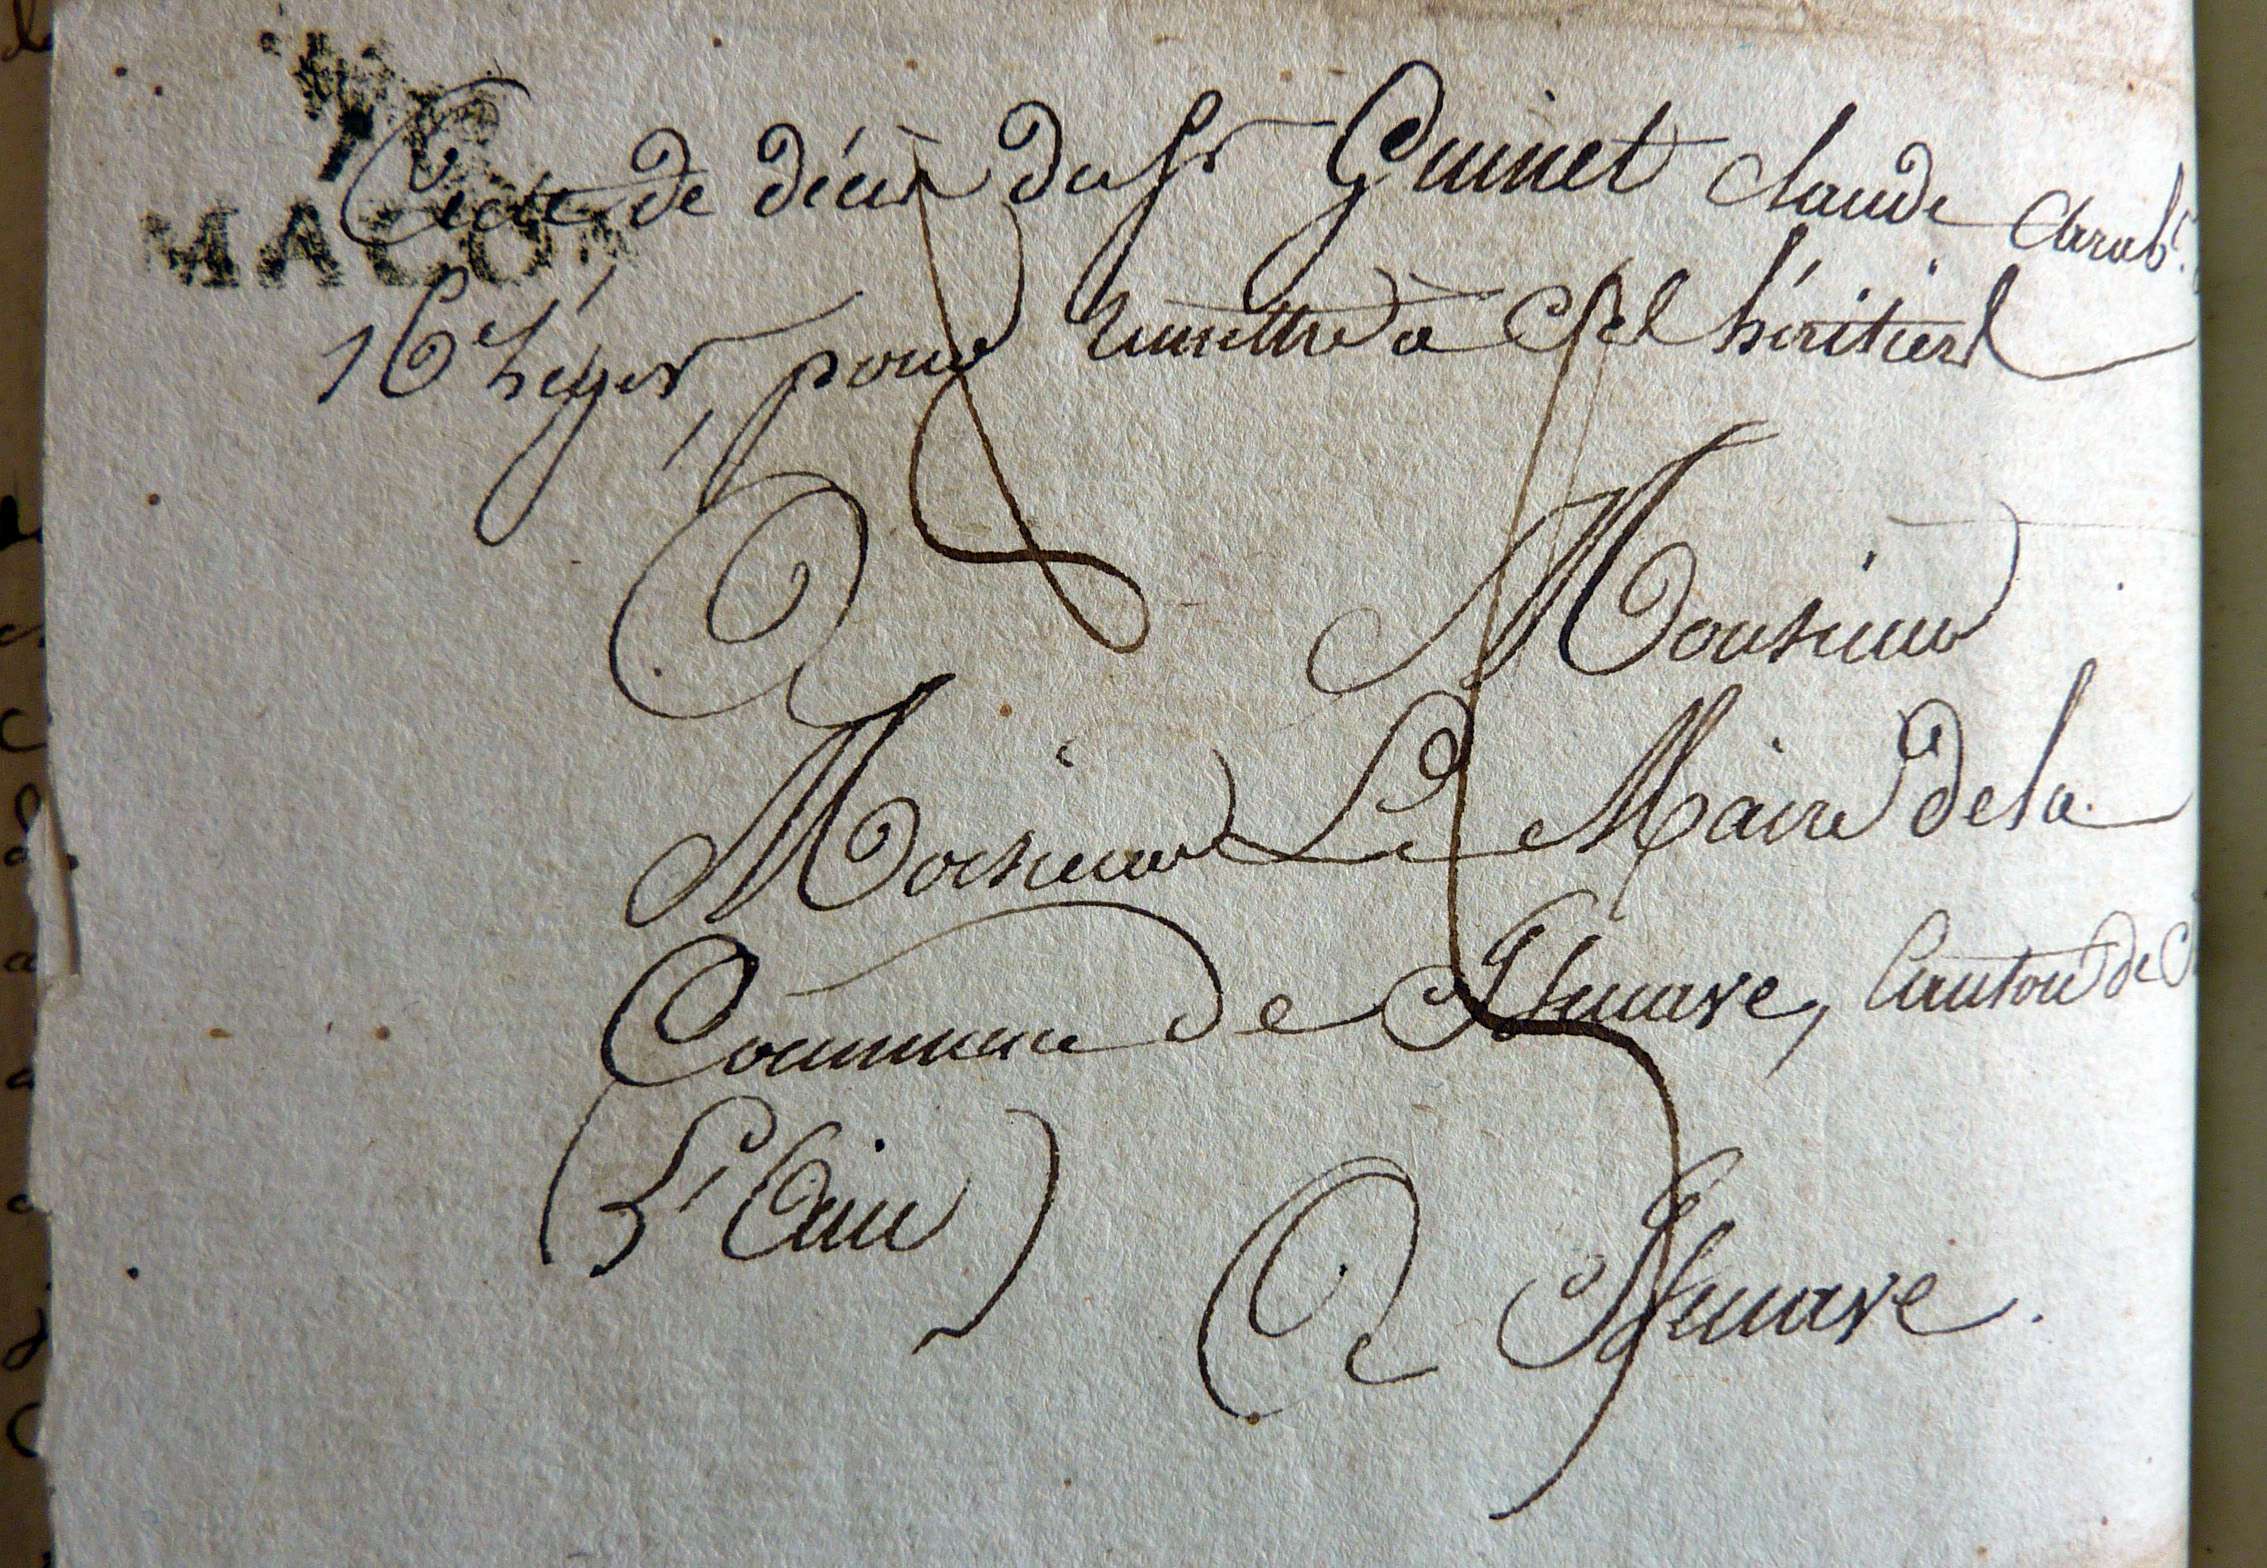 70
MACON
Acte de décès du Sr Guinet Claude Carab.r
16e léger, pour remettre à ses héritiers
A Monsieur
Monsieur Le Maire de la
Commune de Illeuave, Canton de
(L'Ain)
A